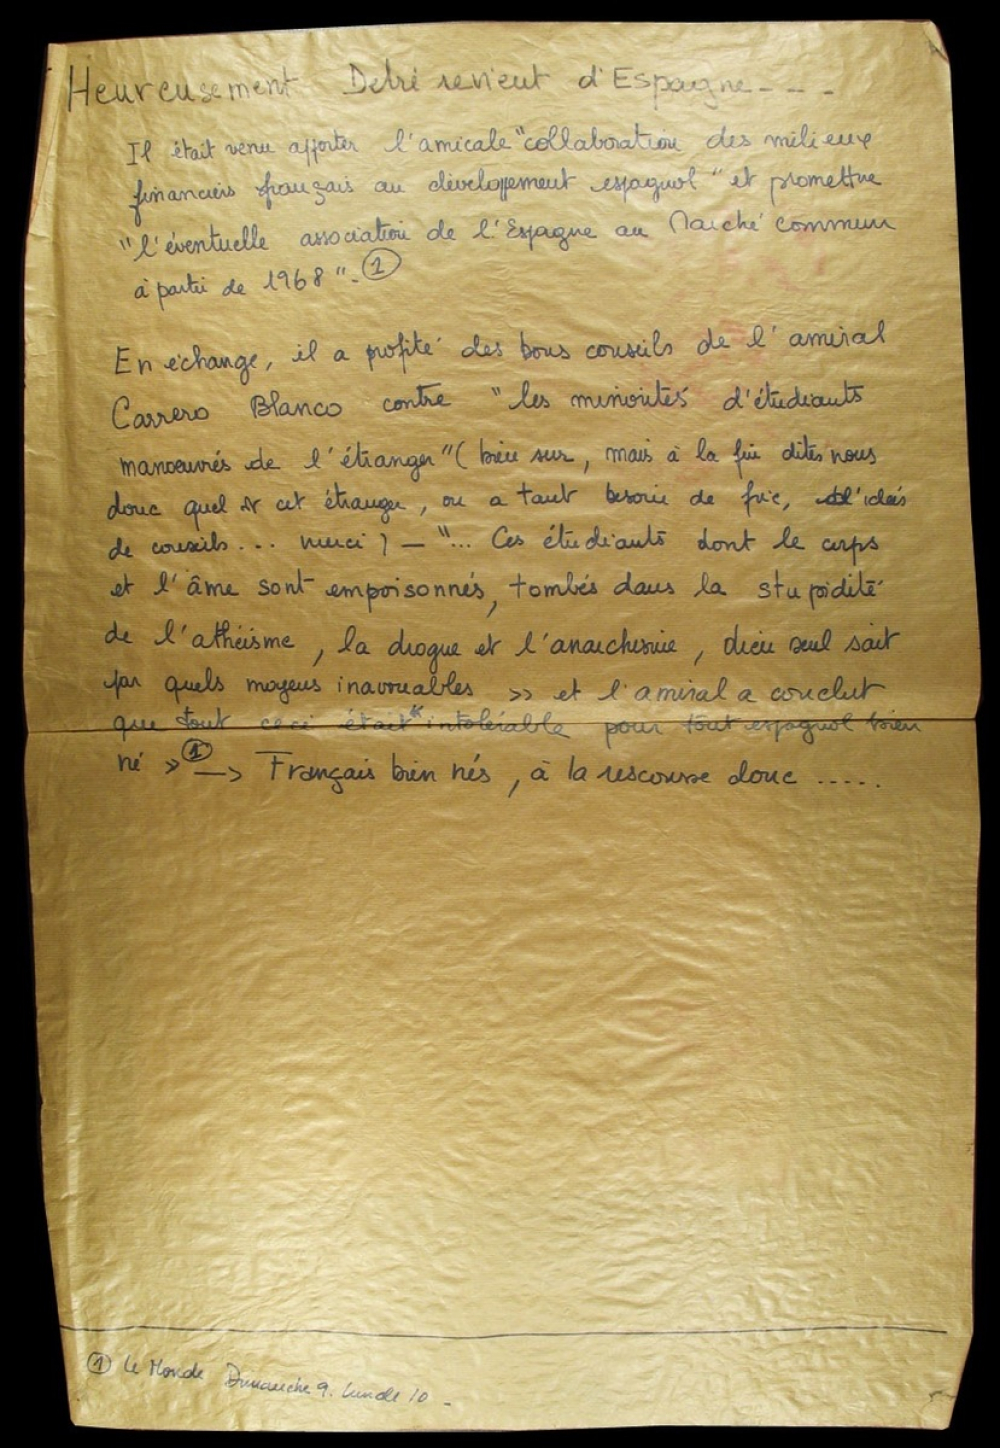 Heureusement Debré revient d'Espagne - - -
Il était venu apporter l'amicale "collaboration des milieux
financiers français au développement espagnol" et promettre
"l'éventuelle association de l'Espagne au Marché commun
à partir de 1968". ①
En échange, il a profité des bons conseils de l'amiral
Carrero Blanco contre "les minorités d'étudiants
manoeuvrés de l'étranger" (bien sur, mais à la fin dites nous
donc quel est cet étranger, on a tant besoin de fric, d'idées
de conseils... merci) — "... Ces étudiants dont le corps
et l'âme sont empoisonnés, tombés dans la stupidité
de l'athéisme, la drogue et l'anarchisme, dieu seul sait
par quels moyens inavouables >> et l'amiral a conclut
que tout ceci était "intolérable pour tout espagnol bien
né » ① —> Français bien nés, à la rescousse donc .....
① Le Monde Dimanche 9. Lundi 10 -